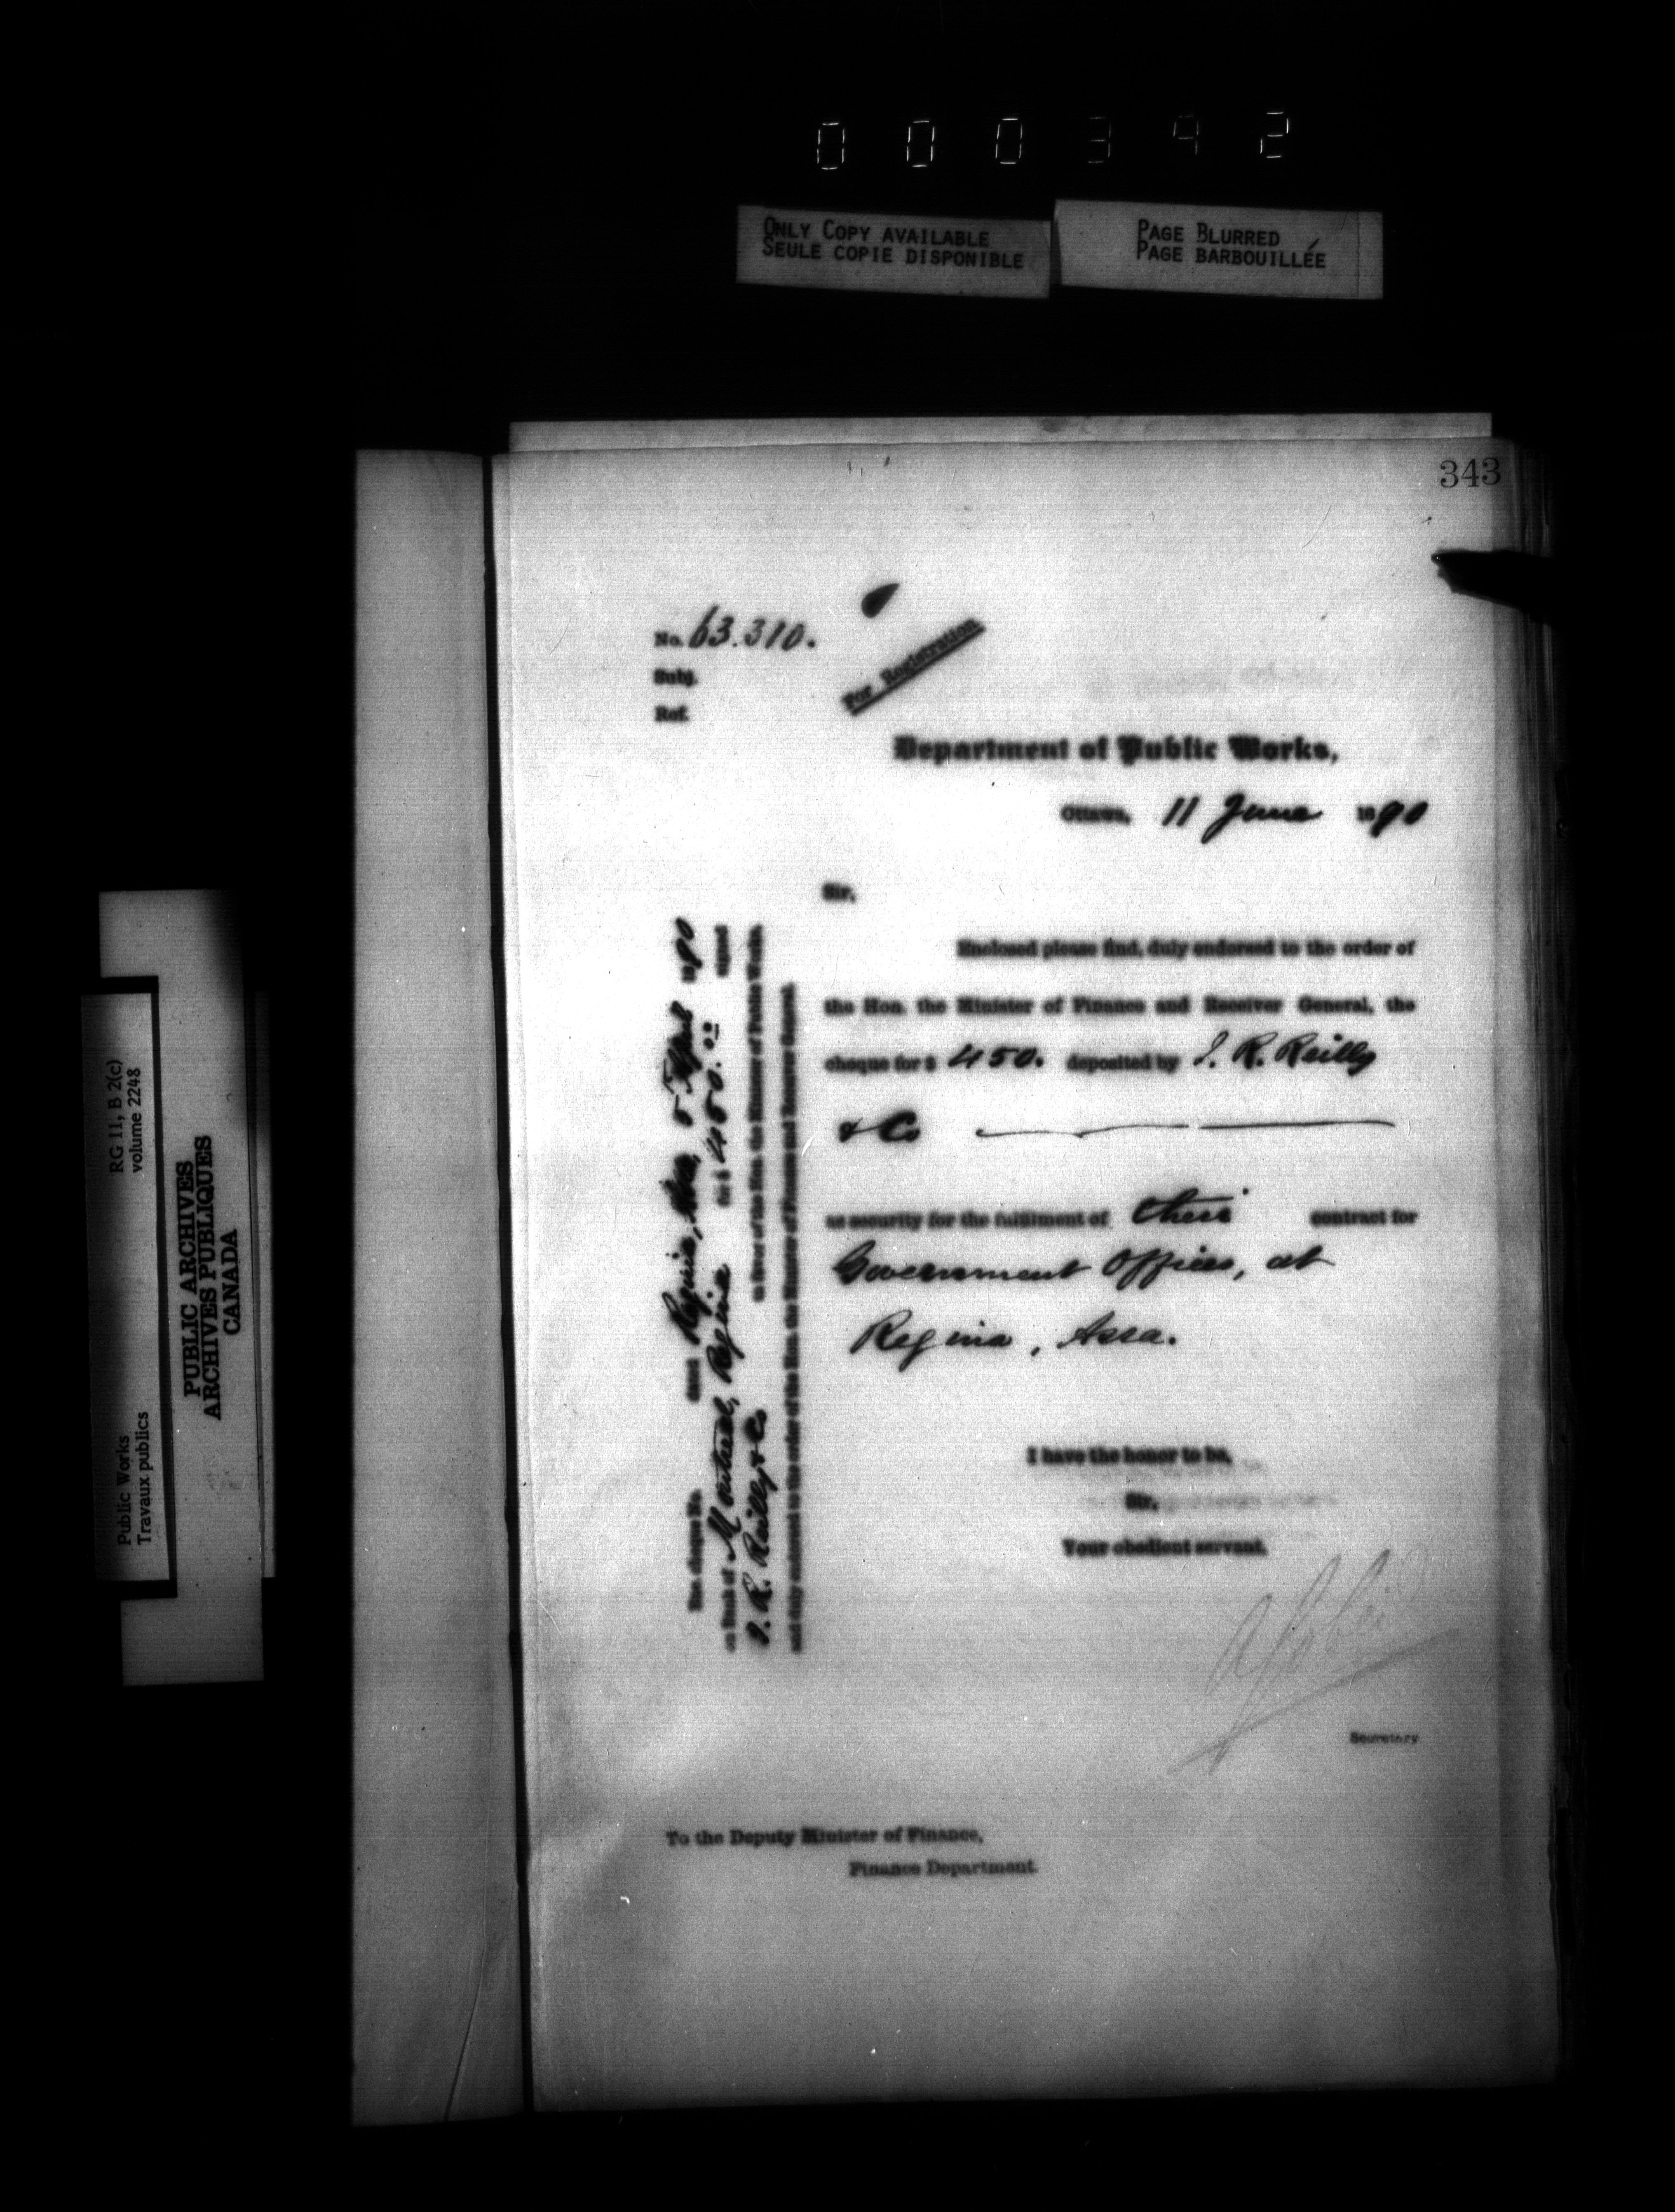 000342
ONLY COPY AVAILABLE
SEULE COPIE DISPONIBLE
PAGE BLURRED
PAGE BARBOUILLÉE
343
No. 63.310.
Subj.
Ref.
For Registration
Department of Public Works,
Ottawa, 11 June 1890
Sir,
Enclosed please find, duly endorsed to the order of
the Hon. the Minister of Finance and Receiver General, the
cheque for $ 450. deposited by J. R. Reilly
& Co
as security for the fulfilment of their contract for
Government Offices, at
Regina, Assa.
I have the honor to be,
Sir,
Your obedient servant,
Secretary
To the Deputy Minister of Finance,
Finance Department.
The cheque No. dated Regina, Assa, 5 April 1890
on Bank of Montreal, Regina for $ 450.00 signed
J. R. Reilly & Co in favor of the Hon. the Minister of Public Works,
and duly endorsed to the order of the Hon. the Minister of Finance and Receiver General.
Public Works
Travaux publics
RG 11, B 2(c)
volume 2248
PUBLIC ARCHIVES
ARCHIVES PUBLIQUES
CANADA